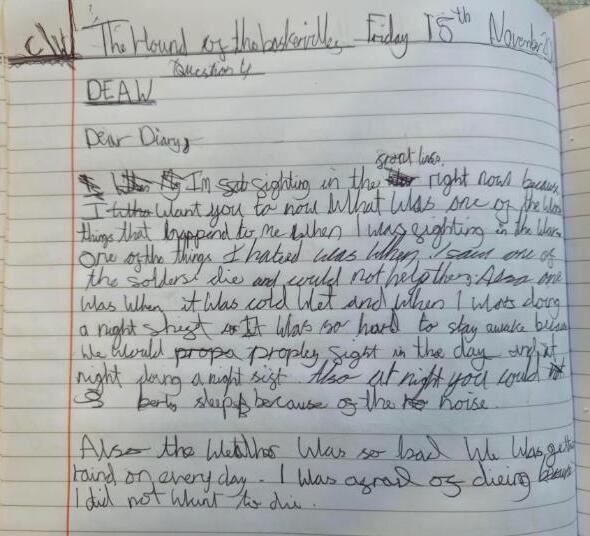 C/W The Hound of the baskervilles Friday 15th November
Question 4
DEAW
Dear Diary,
front line.
I'm fighting in the right now because
I want you to now What Was one of the Wors
things that happend to me When I was fighting in the Wars
One of the things I hateed was When I saw one of
the solders die and could not help them. Also one
Was When it Was cold Wet and When I Was doing
a night shift It Was so hard to stay awake becaus
We Would propa propley fight in the day and at
night doing a night sift. Also at night you could not
sleep because of the noise.
Also the Weather Was so bad We Was gettin
raind on every day. I Was afraid of dieing because
I did not Want to die.